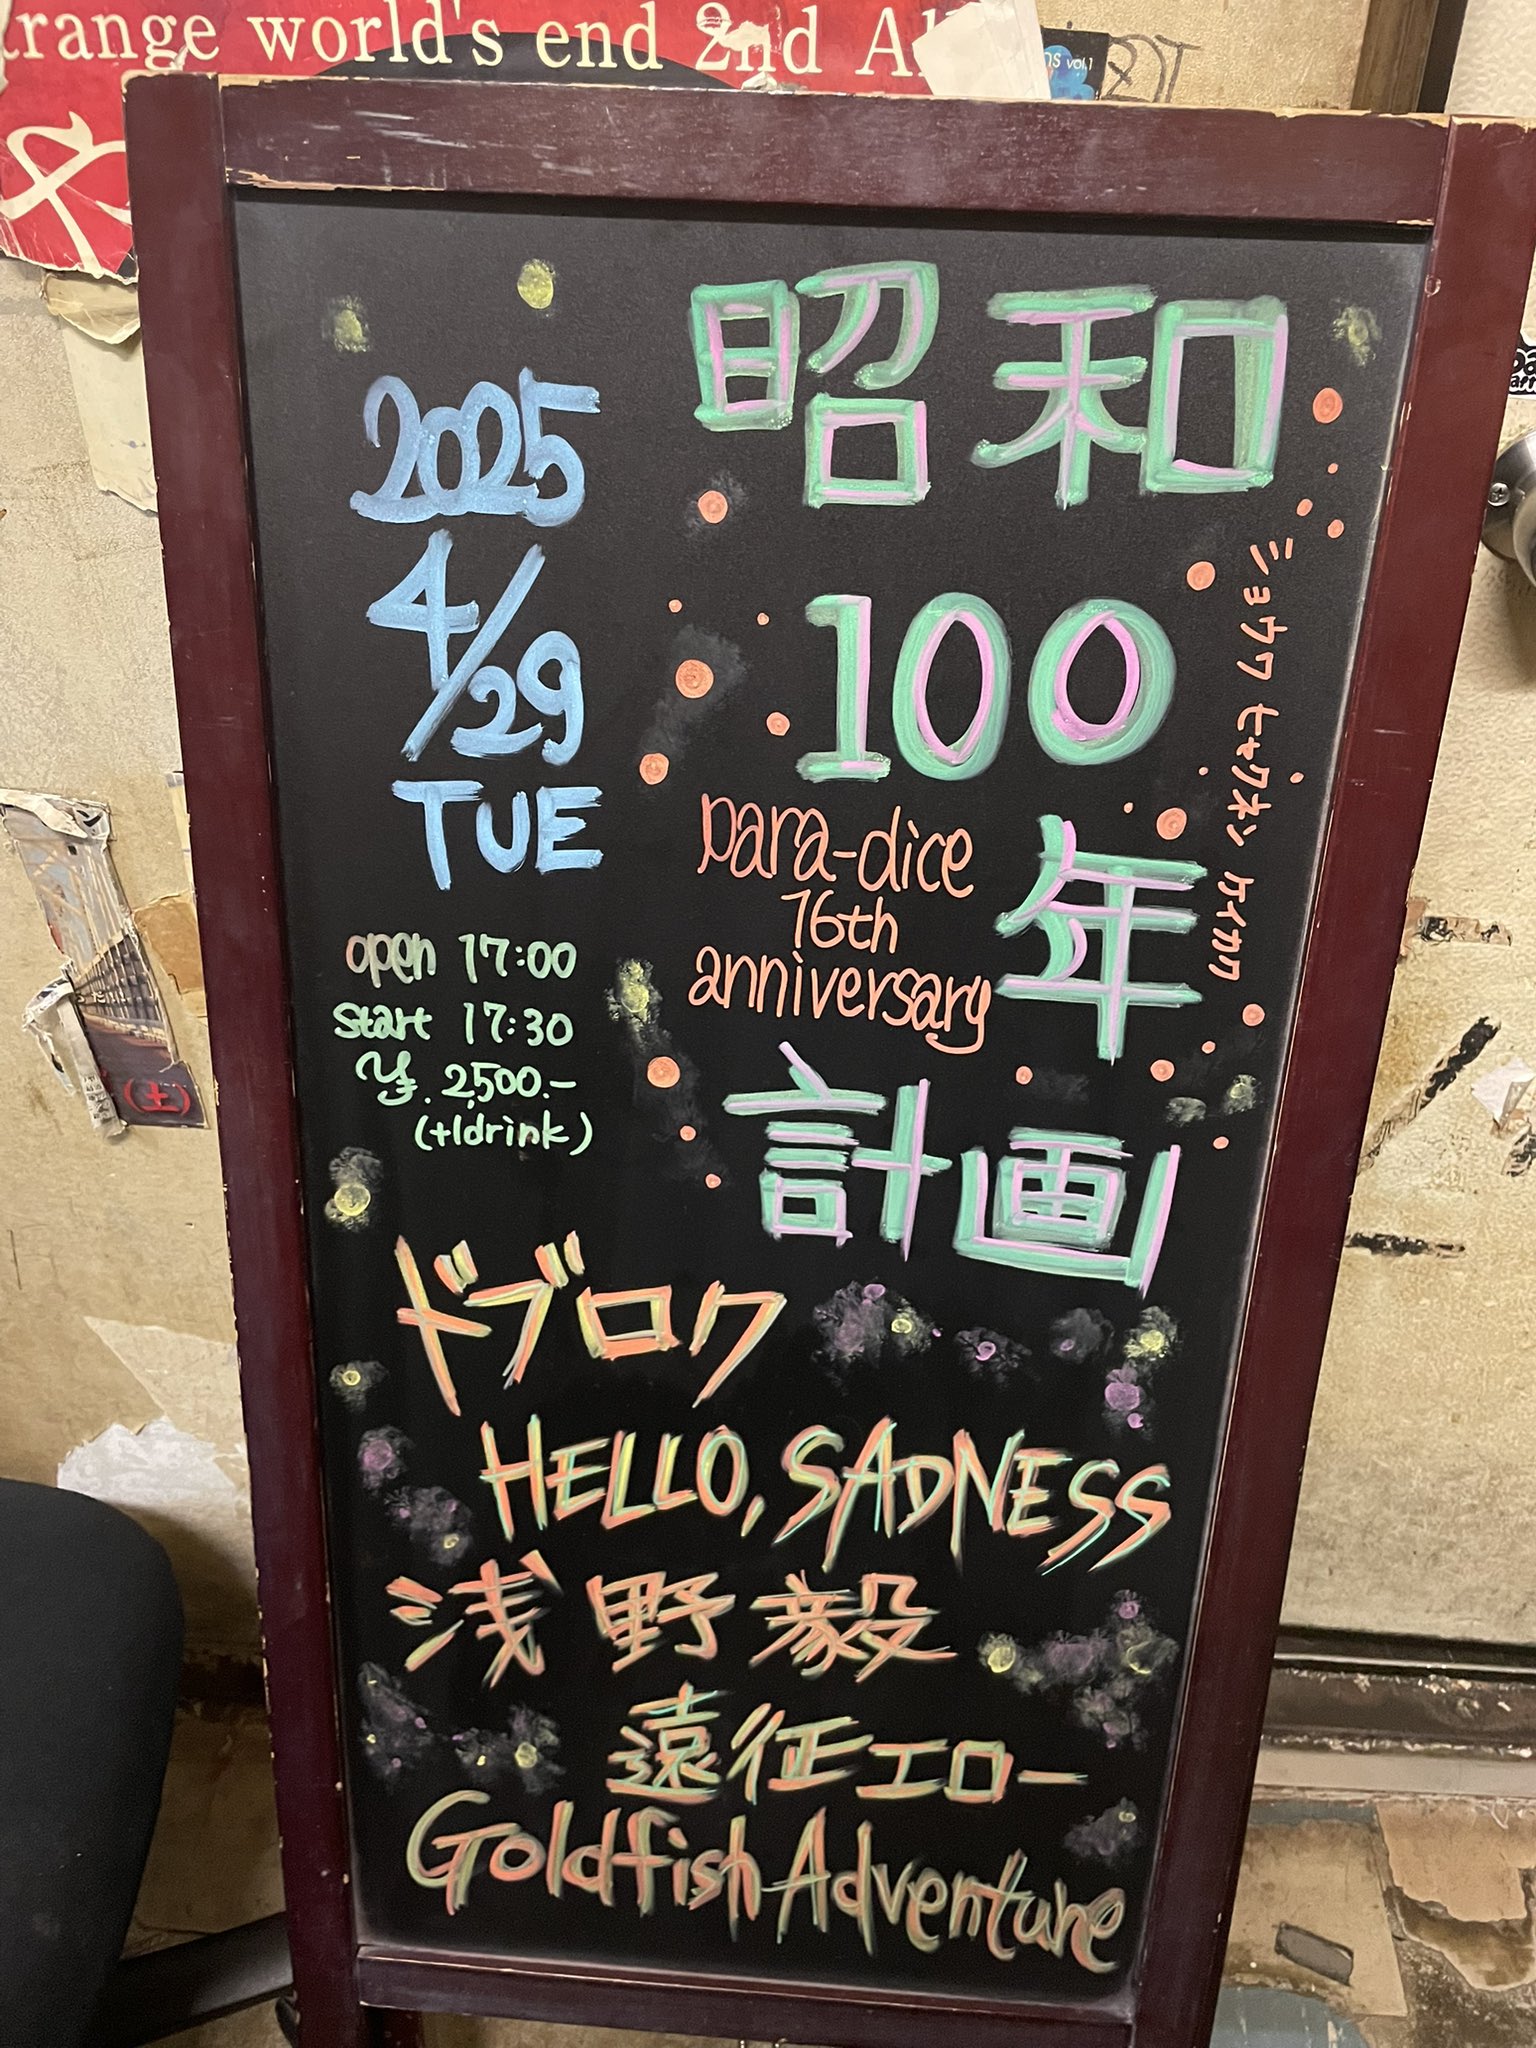 trange world's end 2nd Al
vol.1
昭和
100
年
計画
ショウワ ヒャクネン ケイカク
para-dice
16th
anniversary
2025
4/29
TUE
open 17:00
start 17:30
¥.2,500.-
(+1drink)
ドブロク
HELLO, SADNESS
浅野毅
遠征エロー
Goldfish Adventure
(土)